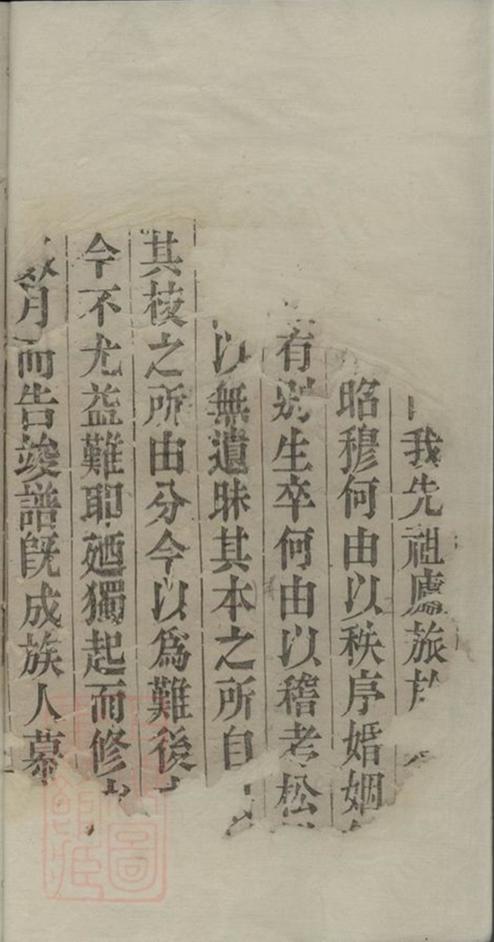 我先祖廬旅
昭穆何由以秩序婚姻
有別生卒何由以稽考松
以無遺昧其本之所自
其枝之所由分今以為難後
今不尤益難耶廼獨起而修
數月而告竣譜旣成族人慕